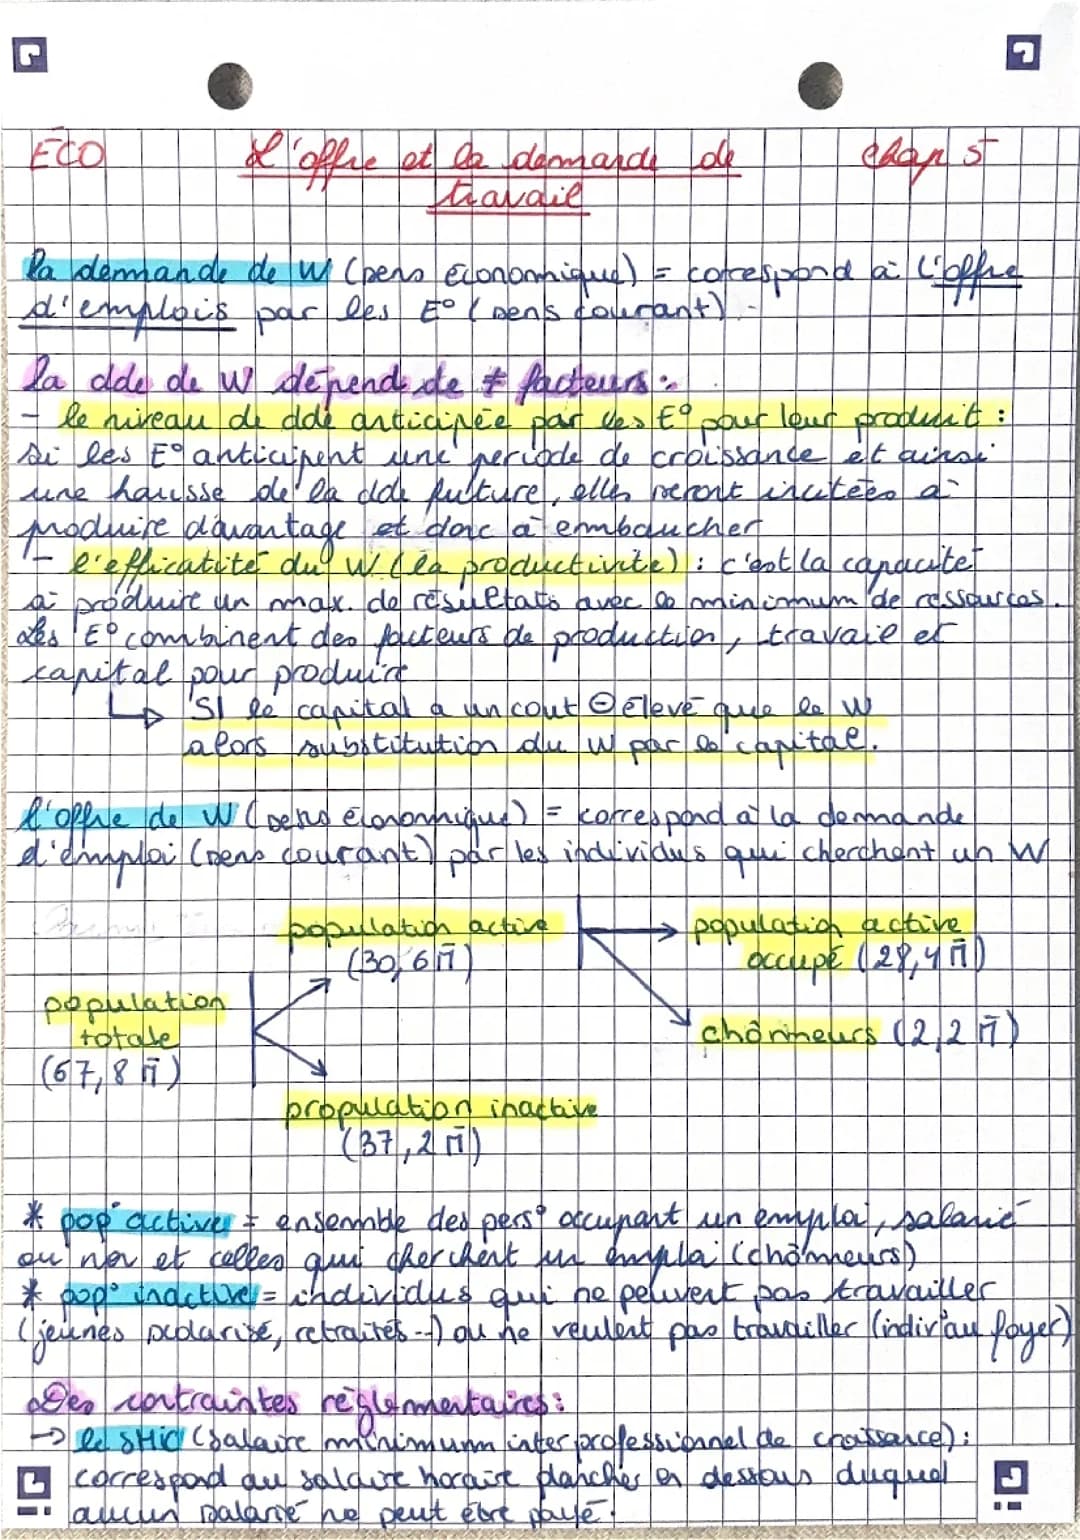 ECO L'offre et la demande de chap 5
travail
la demande de W (sens économique) = correspond à l'offre
d'emplois par les E° (sens courant).
la dde de W dépend de ≠ facteurs :
- le niveau de dde anticipée par les E° pour leur produit :
Si les E° anticipent une période de croissance et ainsi
une hausse de la dde future, elles seront incitées à
produire d'avantage et donc à embaucher
- l'efficatité du W (la productivité) : c'est la capacité
à produire un max. de résultats avec le minimum de ressources.
Les E° combinent des facteurs de production, travail et
capital pour produire
↳ SI le capital a un cout ⊖ élevé que le W
alors substitution du W par le capital.
l'offre de W (sens économique) = correspond à la demande
d'emploi (sens courant) par les individus qui cherchent un W
population active → population active
(30,6 M̄) occupé (28,4 M̄)
population
totale chômeurs (2,2 M̄)
(67,8 M̄)
propulation inactive
(37,2 M̄)
* pop° active = ensemble des pers° occupant un emploi, salarié
ou non et celles qui cherchent un emploi (chômeurs)
* pop° inactive = individus qui ne peuvent pas travailler
(jeunes scolarisé, retraités...) ou ne veulent pas travailler (indiv° au foyer)
Des contraintes réglementaires :
→ le SMIC (salaire minimum interprofessionnel de croissance) :
correspond au salaire horaire plancher en dessous duquel
aucun salarié ne peut être payé.